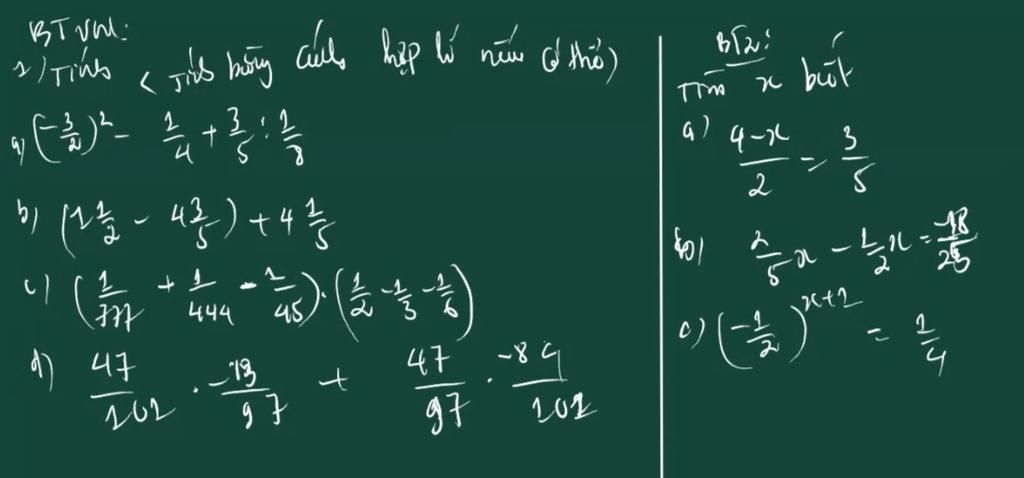 BTVN:
1) Tính < Tính bằng cách hợp lí nếu có thể)
a) (-3/2)² - 1/4 + 3/5 : 1/8
b) (1 1/2 - 4 3/5) + 4 1/5
c) (1/777 + 1/444 - 1/45) . (1/2 - 1/3 - 1/6)
d) 47/101 . -13/97 + 47/97 . -84/101
BT2:
Tìm x biết
a) (4-x)/2 = 3/5
b) 2/5 x - 1/2 x = -18/25
c) (-1/2)^(x+1) = 1/4